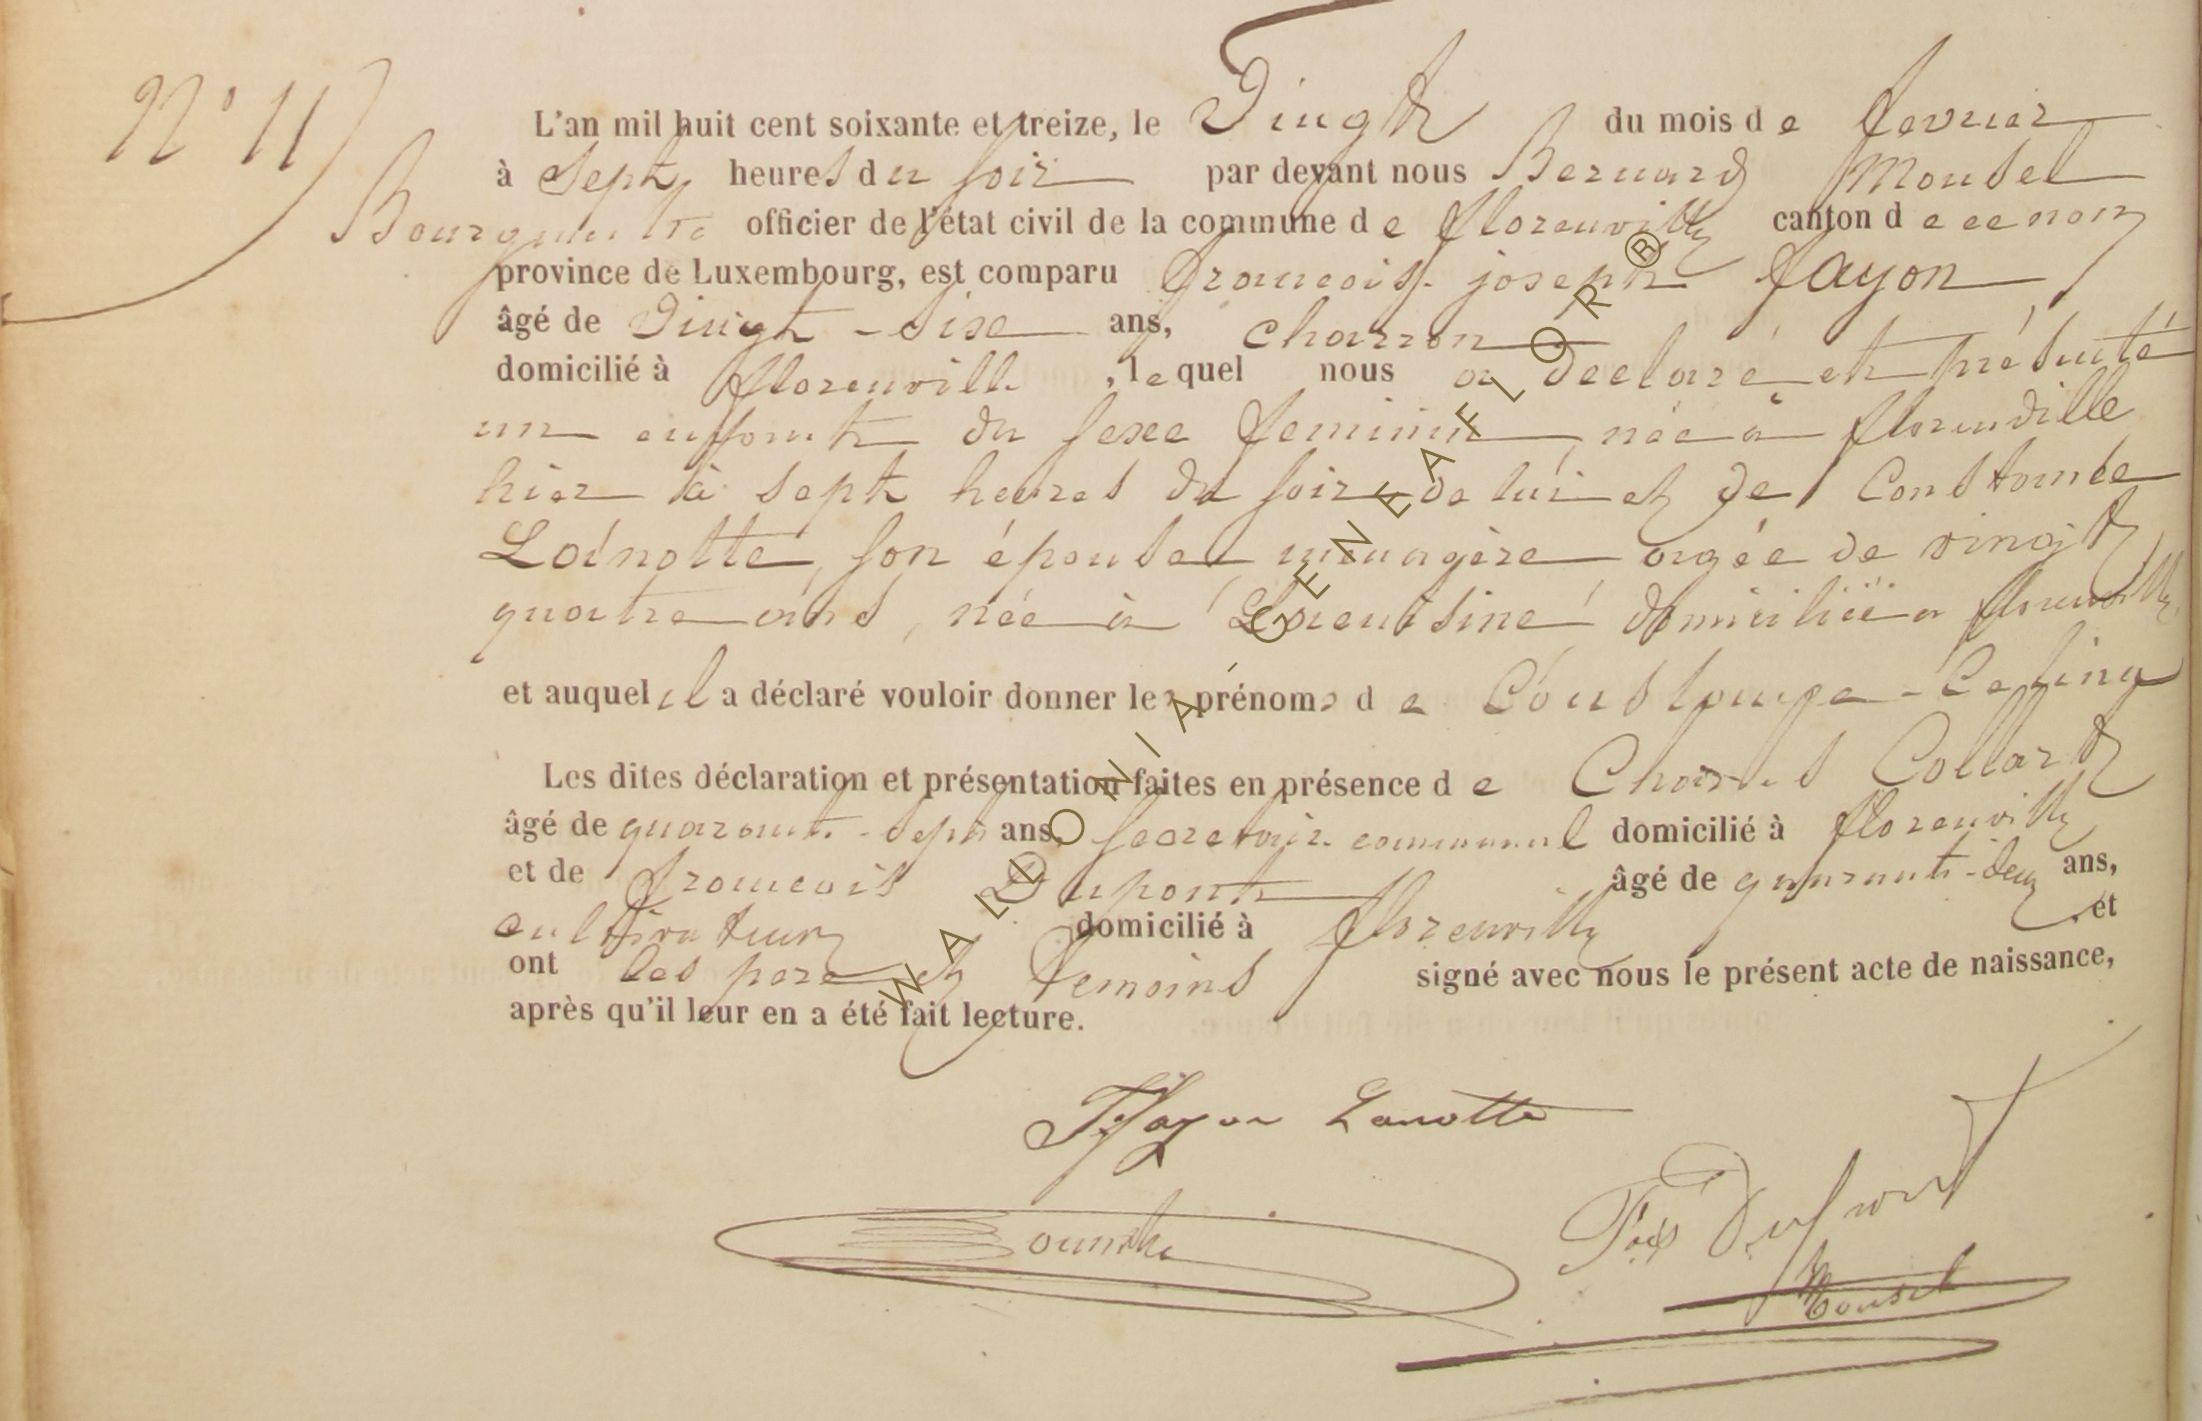 N° 11
L'an mil huit cent soixante et treize, le Vingt du mois de fevrier
à Sept heures du soir par devant nous Bernard Mousel
Bourgmestre officier de l'état civil de la commune de florenville canton de ce nom
province de Luxembourg, est comparu francois-joseph fayon
âgé de Vingt-sixe ans, charron
domicilié à florenville, lequel nous a déclaré et présenté
un enffant du sexe feminin, née à florenville
hier à sept heures du soir de lui et de Constance
Lainotte, son épouse, menagère agée de vingt
quatre ans, née à domiciliée a florenville
et auquel il a déclaré vouloir donner les prénoms de Constance-Celina
Les dites déclaration et présentation faites en présence de Charles Collard
âgé de quarante-sept ans, secretaire communal domicilié à florenville
et de francois Dupont âgé de quarante-deux ans,
cultivateur domicilié à florenville et
ont les pere et temoins signé avec nous le présent acte de naissance,
après qu'il leur en a été fait lecture.
Fayon Lanotte
Fois Dupont
Mousel
WALLONIA-GENEAFLOR®